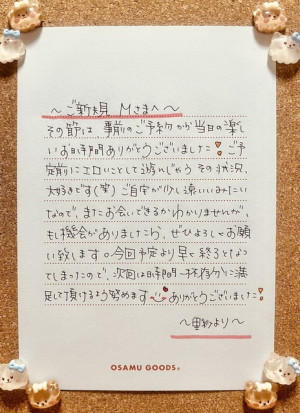 〜ご新規 Mさまへ〜
その節は 事前のご予約から当日の楽し
いお時間ありがとうございました！ご予
定前にエロいことして遊んじゃう その状況、
大好きです(笑) ご自宅が少し遠いみたい
なので、またお会いできるかわかりませんが、
もし機会がありましたら、ぜひよろしくお願
い致します。今回予定より早く終了となっ
てしまったので、次回はお時間一杯存分に満
足して頂けるよう努めます ありがとうございました！
より〜
OSAMU GOODS®